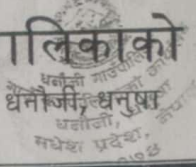 ालिकाको
धनौजी, धनुषा
धनौजी गाउँपालिका
धनौजी,
मधेश प्रदेश,